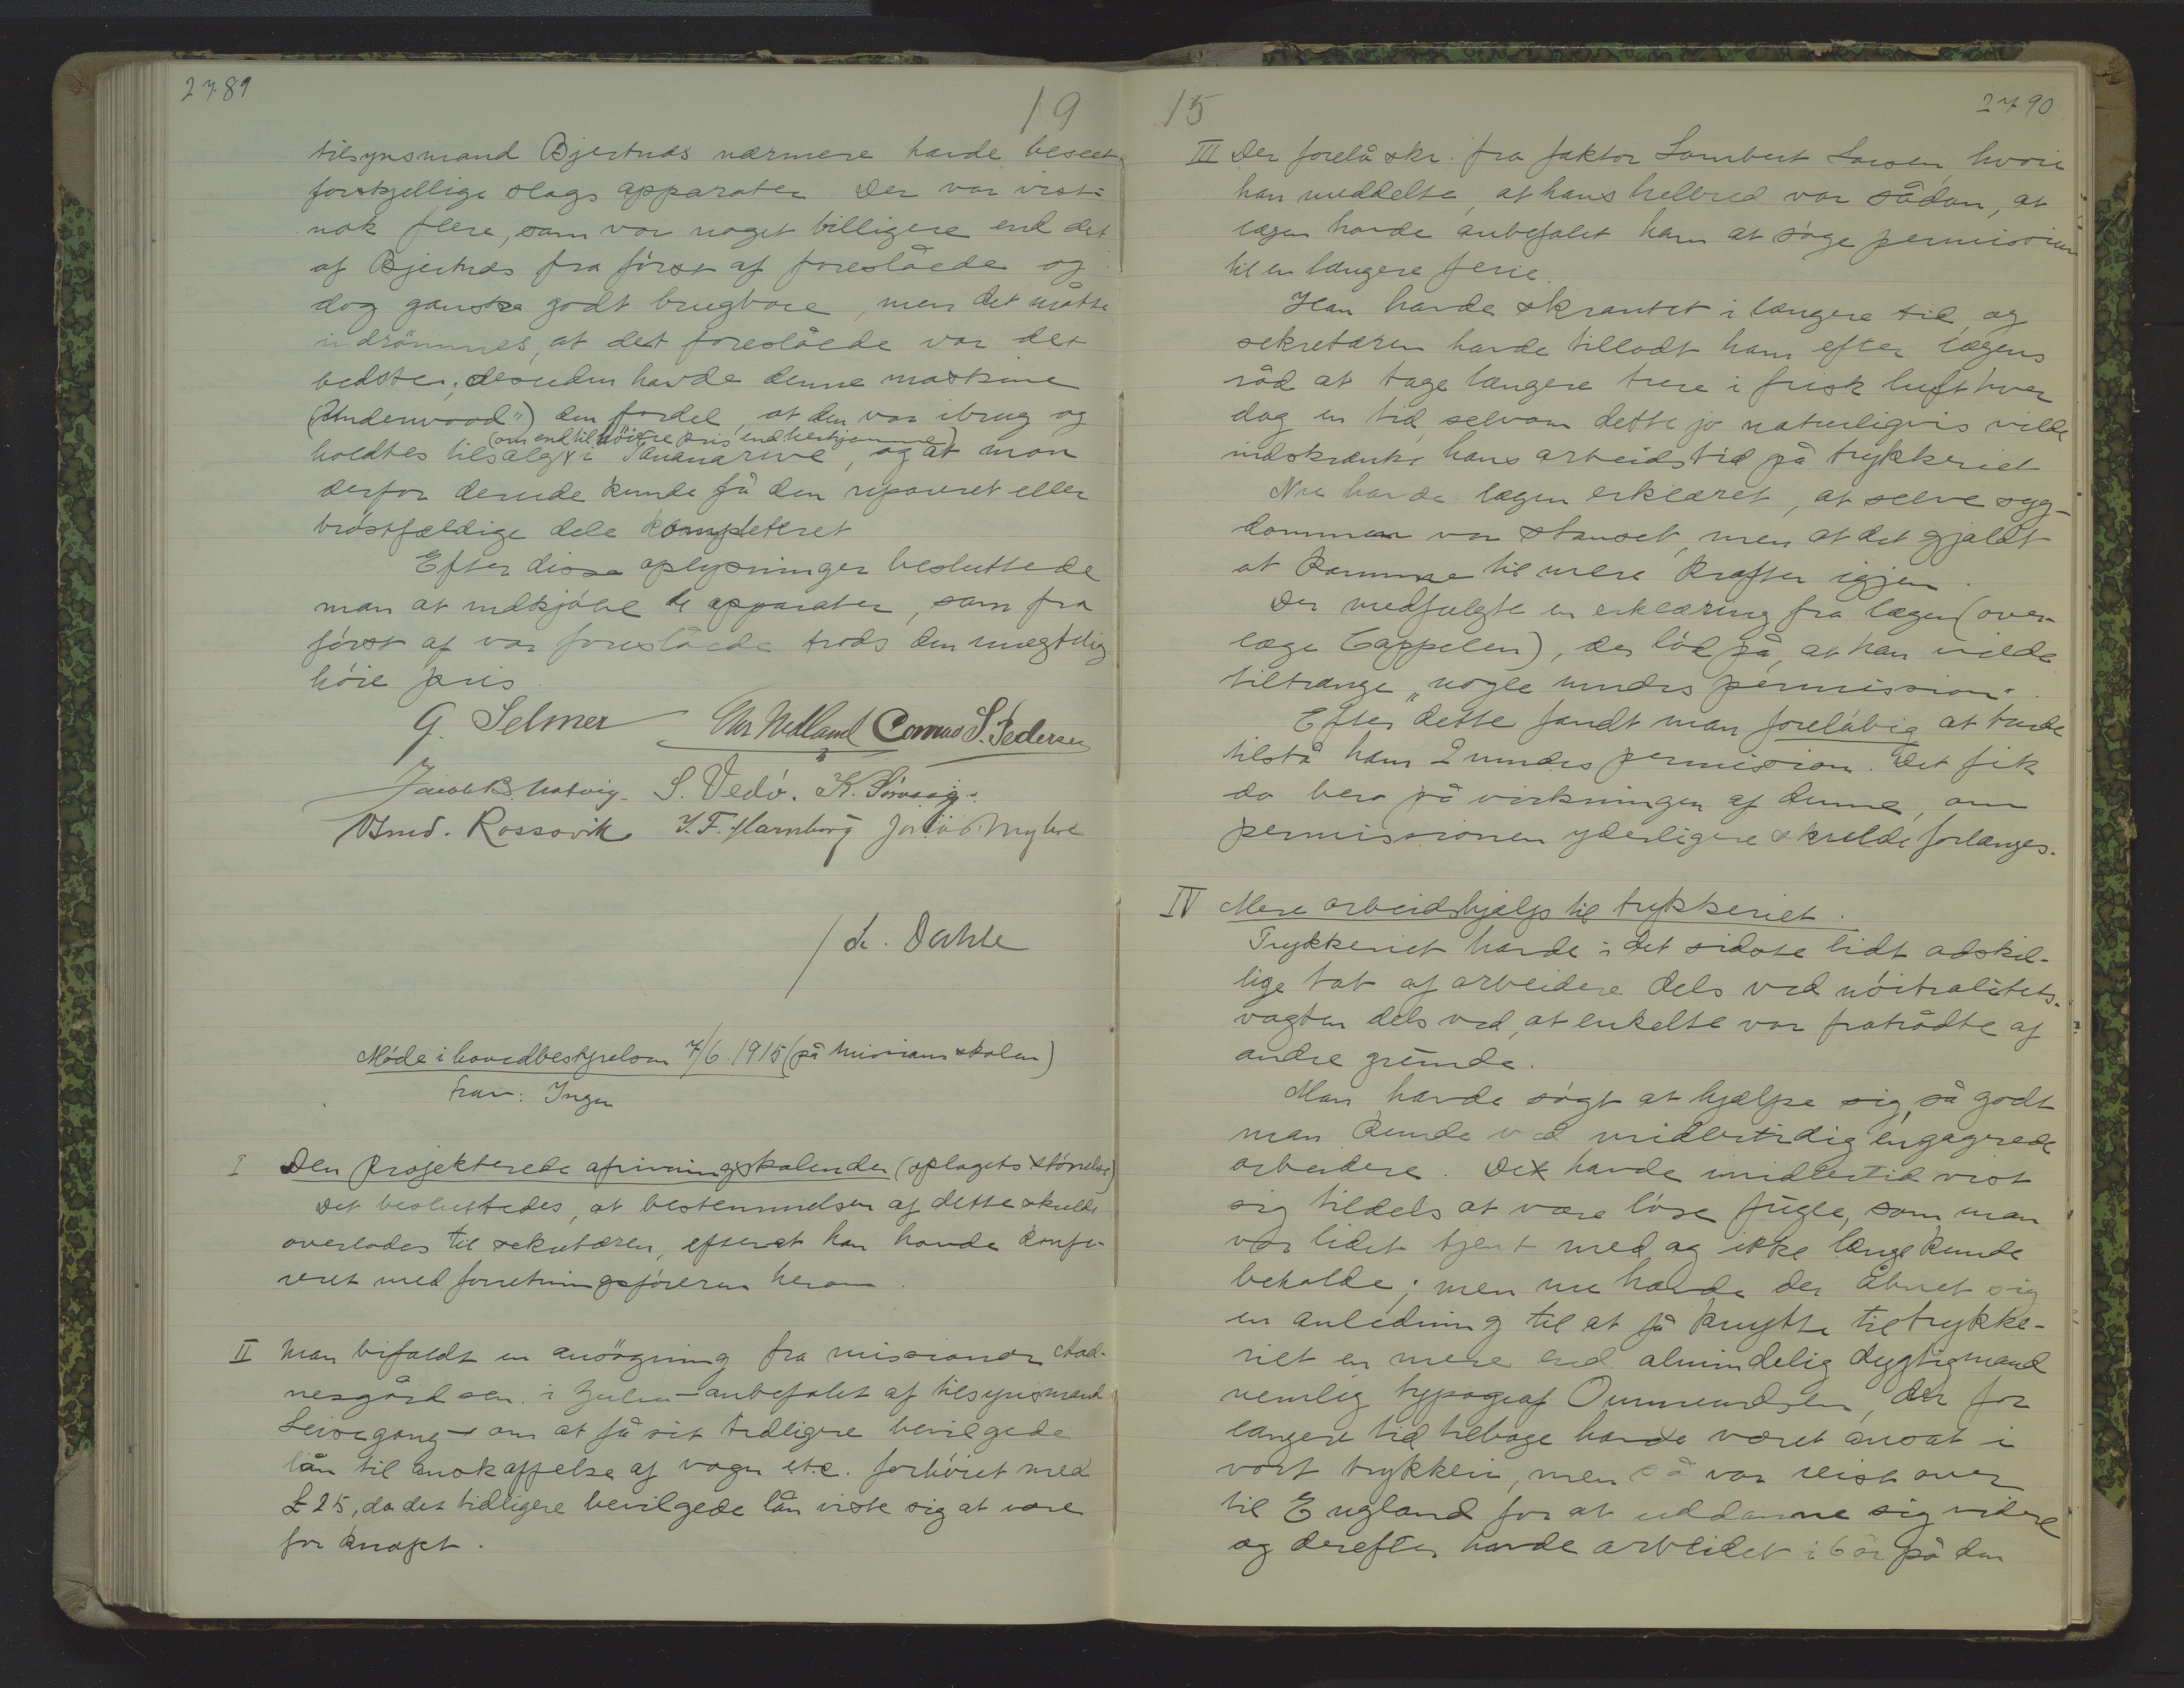 2789
19
tilsynsmand Bjertnæs nærmere havde beseet
forskjellige slags apparater. Der var vist-
nok flere, som var noget billigere end det
af Bjertnæs fra først af foreslåede og
dog ganske godt brugbare, men det måtte
indrömmes, at det foreslåede var det
bedste; desuden havde denne maskine
("Underwood") den fordel at den var ibrug og
(om end til höiere pris end herhjemme)
holdtes tilsalgs i Tananarive, og at man
derfor derude kunde få den repareret eller
bröstfældige dele kompleteret
Efter disse oplysninger besluttede
man at indkjöbe de apparater, som fra
först af var foreslåede trods den mægtig
höie pris.
G. Selmer Chr Nedland Conrad S. Pedersen
Jacob B. Natvig. S. Vedö. K. Sörvaag.
Osmd. Rossavik J. F. Harnborg Jonas Myhre
/ L. Dahle
Möde i hovedbestyrelsen 7/6. 1915 (på missionsskolen)
Frav: Ingen
I Den projekterede afrivningskalender (oplagets störrelse)
Det besluttedes, at bestemmelsen af dette skulde
overlades til sekretæren, efterat han havde konfe-
reret med forretningsföreren herom.
II Man bifaldt en ansögning fra missionær Aad-
nesgård sen. i Zulu – anbefalet af tilsynsmand
Leisegang – om at få sit tidligere bevilgede
lån til anskaffelse af vogn etc. forhöiet med
£ 25, da det tidligere bevilgede lån viste sig at være
for knapt.
15
2790
III Der forelå skr. fra faktor Lambert Larsen, hvori
han meddelte, at hans helbred var sådan, at
lægen havde anbefalet ham at söge permission
til en længere ferie.
Han havde skrantet i længere tid, og
sekretæren havde tilladt ham efter lægens
råd at tage længere ture i frisk luft hver
dag en tid, selvom dette jo naturligvis vilde
indskrænke hans arbeidstid på trykkeriet
Nu havde lægen erklæret, at selve syg-
dommen var stanset, men at det gjaldt
at komme til mere kræfter igjen.
Der medfulgte en erklæring fra lægen (over-
læge Cappelen), der löd på, at han vilde
tiltrænge "nogle mndrs permission".
Efter dette fandt man forelöbig at burde
tilstå ham 2 mndrs permission. Det fik
da bero på virkningen af denne, om
permissionen yderligere skulde forlænges.
IV Mere arbeidshjælp til trykkeriet.
Trykkeriet havde i det sidste lidt adskil-
lige tab af arbeidere dels ved nöitralitets-
vagten dels ved, at enkelte var fratrådte af
andre grunde.
Man havde sögt at hjælpe sig, så godt
man kunde ved midlertidig engagerede
arbeidere. Det havde imidlertid vist
sig tildels at være löse fugle, som man
var lidet tjent med og ikke længe kunde
beholde; men nu havde der åbnet sig
en anledning til at få knytte til trykke-
riet en mere end almindelig dygtig mand
nemlig typograf Ommundsen, der for
længere tid tilbage havde været ansat i
vort trykkeri, men så var reist over
til England for at uddanne sig videre
og derefter havde arbeidet i 6 år på den